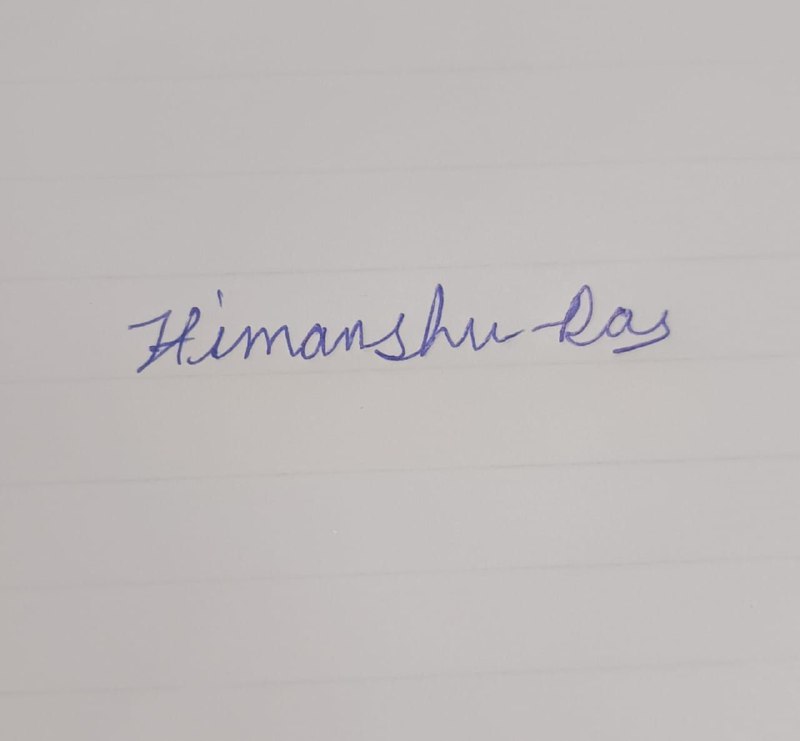 Himanshu Das